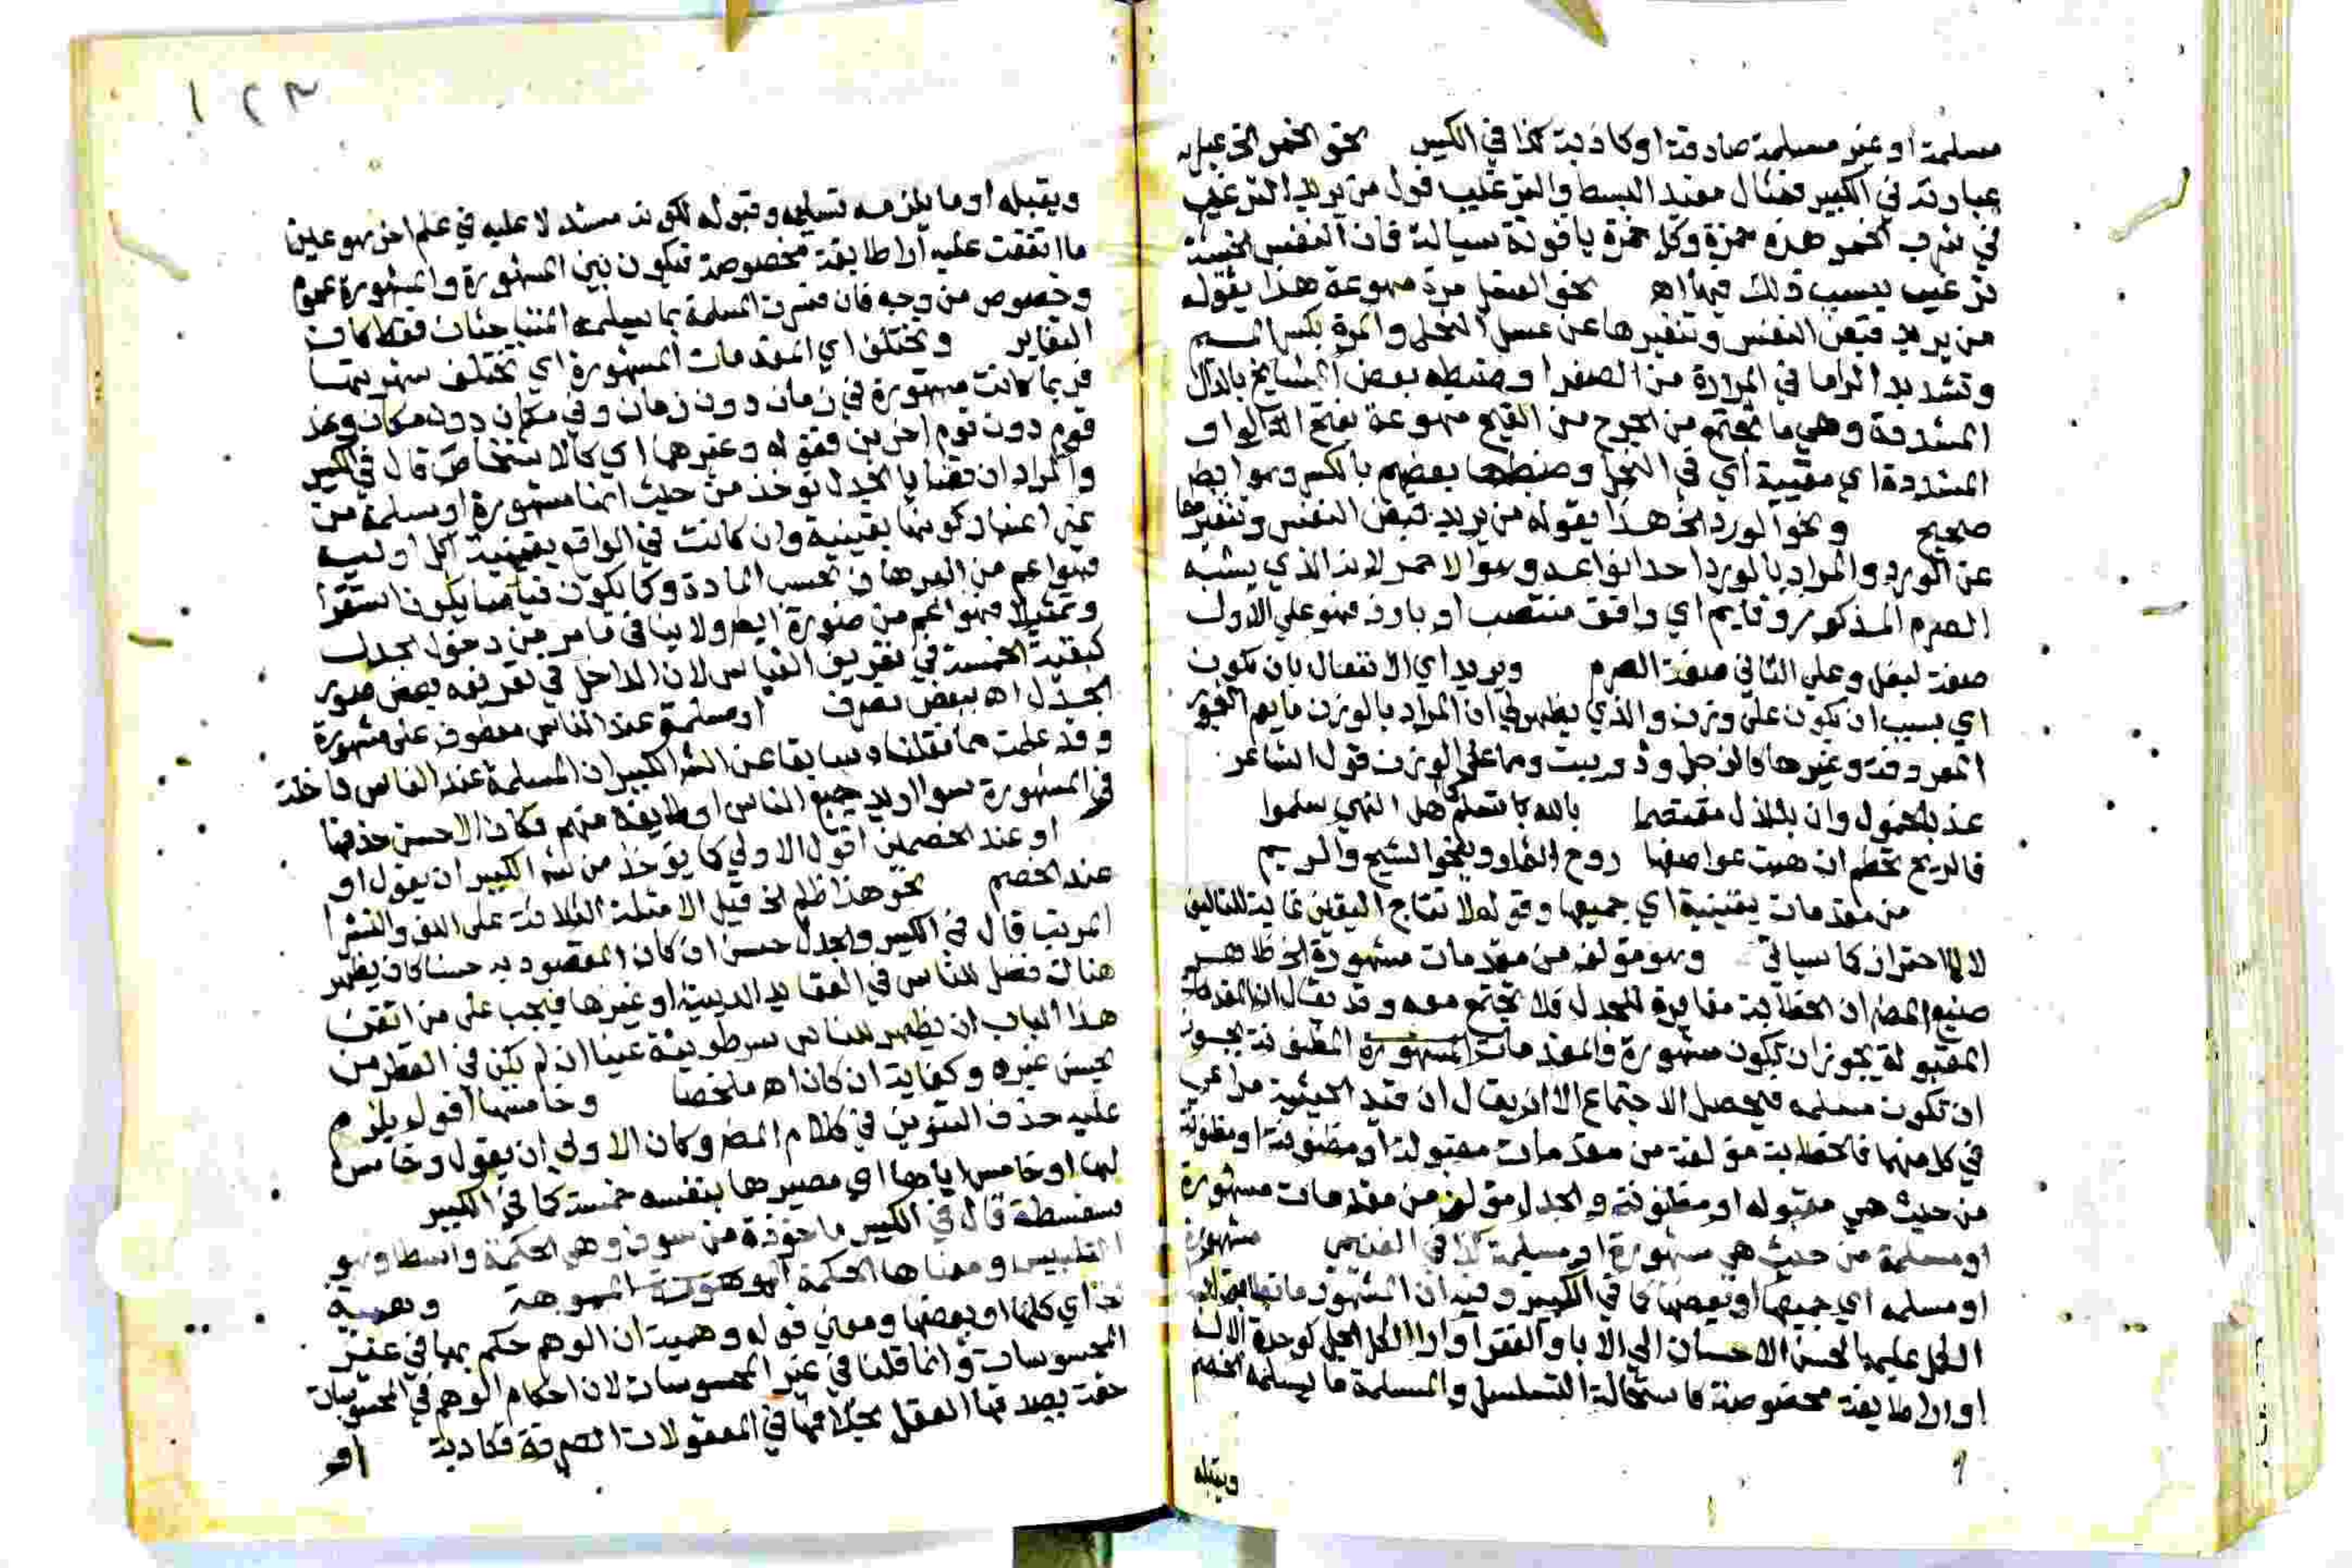 مسلمة او غير مسلمة صادقة او كاذبة كذا في الكبير نحو الخمر الخ عبا
عبارته في الكبير فمثال مفيد البسط والترغيب قول من يريد الترغيب
في شرب الخمر هذه خمرة وكل خمرة ياقوتة سيالة فان النفس
ترغب بسبب ذلك فيها اه نحو العسل مرة مهوعة هذا يقوله
من يريد قبض النفس وتنفيرها عن عسل النحل والمرة بكسر الميم
وتشديد الرا ما في المرارة من الصفرا وضبطه بعض المشايخ بالدال
المشددة وهي ما يجتمع من الجرح من القيح مهوعة بفتح الواو
المشددة اي مقيية اي في النحل وضبطها بعضهم بالكسر وهو ايضا
صحيح ونحو الورد الخ هذا يقوله من يريد قبض النفس وتنفيرها
عن الورد والمراد بالورد احد انواعه وهو الاحمر لانه الذي يشبه
الصرم المذكور وقايم اي واقف منتصب او بارز فهو على الاول
صفة لبغل وعلى الثاني صفة الصرم ويزيد اي الانفعال بان تكون
اي بسبب ان تكون على وزن والذي يظهر لي ان المراد بالوزن ما يعم البحور
المعروفة وغيرها كالزجل وذو بيت ومما على الوزن قول الشاعر
عذ بالخمول وان بالذل مقتصما بالله كما تسلم اهل النهى سلموا
فالريح تحطم ان هبت عواصفها روح الثمار وينجو الشيح والريم
من مقدمات يقينية اي جميعها وقوله لانتاج اليقين غاية للتاليف
لا للاحتراز كما سياتي وهو مؤلف من مقدمات مشهورة الخ ظاهر
صنيع المص ان الخطابة مغايرة للجدل فلا تجتمع معه وقد يقال ان المقدمات
المقبولة يجوز ان تكون مشهورة والمقدمات المشهورة المظنونة يجوز
ان تكون مسلمه فيحصل الاجتماع الا ان يقال ان قيد الحيثية مراعى
في كل منهما فالخطابة مؤلفة من مقدمات مقبولة او مظنونة
من حيث هي مقبوله او مظنونة والجدل مؤلف من مقدمات مشهورة
او مسلمة من حيث هي مشهورة او مسلمة كذا في الغنيمي مشهورة
او مسلمه اي جميعها او بعضها كما في الكبير وفيه ان المشهور ما
الكل عليها كحسن الاحسان الى الابا والفقرا او الكل كوحدة الاله
او طايفة مخصوصة كاستحالة التسلسل والمسلمة ما يسلمه الخصم
ويقبله
١٢٣
ويقبله او ما يلزمه تسليمه وقبوله لكونه مستدلا عليه في علم اخر هو علينا
ما اتفقت عليه اراء طايفة مخصوصة فيكون بين المشهورة والمشهورة عموم
وخصوص من وجه فان فسرت المسلمة بما يسلمه المتباحثان فقط كان
التغاير وتختلف اي المقدمات المشهورة اي تختلف شهرتها
فربما كانت مشهورة في زمان دون زمان وفي مكان دون مكان وعند
قوم دون قوم اخرين فقوله وغيرهما اي كالاشخاص قال في الكبير
والمراد ان قضايا الجدل توخذ من حيث انها مشهورة او مسلمة من
غير اعتبار كونها يقينية وان كانت في الواقع يقينية
فهو اعم من البرهان بحسب المادة وكما يكون قياسا يكون استقرا
وتمثيلا فهو اعم من صورة ايضا ولا ينافي ما مر من دخول الجدل
كبقية الخمسة في تعريف القياس لان الداخل في تعريفه بعض صور
الجدل اه ببعض تصرف او مسلمة عند الناس معطوف على مشهورة
وقد علمت مما نقلناه سابقا عن الش الكبير ان المسلمة عند الناس داخلة
في المشهورة سوا اريد جميع الناس او طايفة منهم فكان الاحسن حذفها
او عند الخصمين اقول الاولى كما يؤخذ من الش الكبير ان يقول او
عند الخصم نحو هذا ظلم الخ قيل الامثلة الثلاثة على اللف والنشر
المرتب قال في الكبير والجدل حسن ان كان المقصود به حسنا كان يظهر
هنالك فضل للناس في العقايد الدينية او غيرها فيجب على من اتقن
هذا الباب ان يظهر للناس سر طويته عينا ان لم يكن في القطر من
يحسن غيره وكفاية ان كان اه ملخصا وخامسها اقول يلزم
عليه حذف التنوين في كلام المص وكان الاولى ان يقول وخامس
لها او خامس اياها اي مصيرها بنفسه خمسة كما في الكبير
سفسطة قال في الكبير ماخوذة من سوف وهي الحكمة واسطا وهو
التلبيس ومعناها الحكمة المموهة وهمية
اي كلها او بعضها ومعنى قوله وهمية ان الوهم حكم بها في غير
المحسوسات وانما قلنا في غير المحسوسات لان احكام الوهم في المحسوسات
حقة يصدقها العقل بخلافها في المعقولات الصرفة فكاذبة او